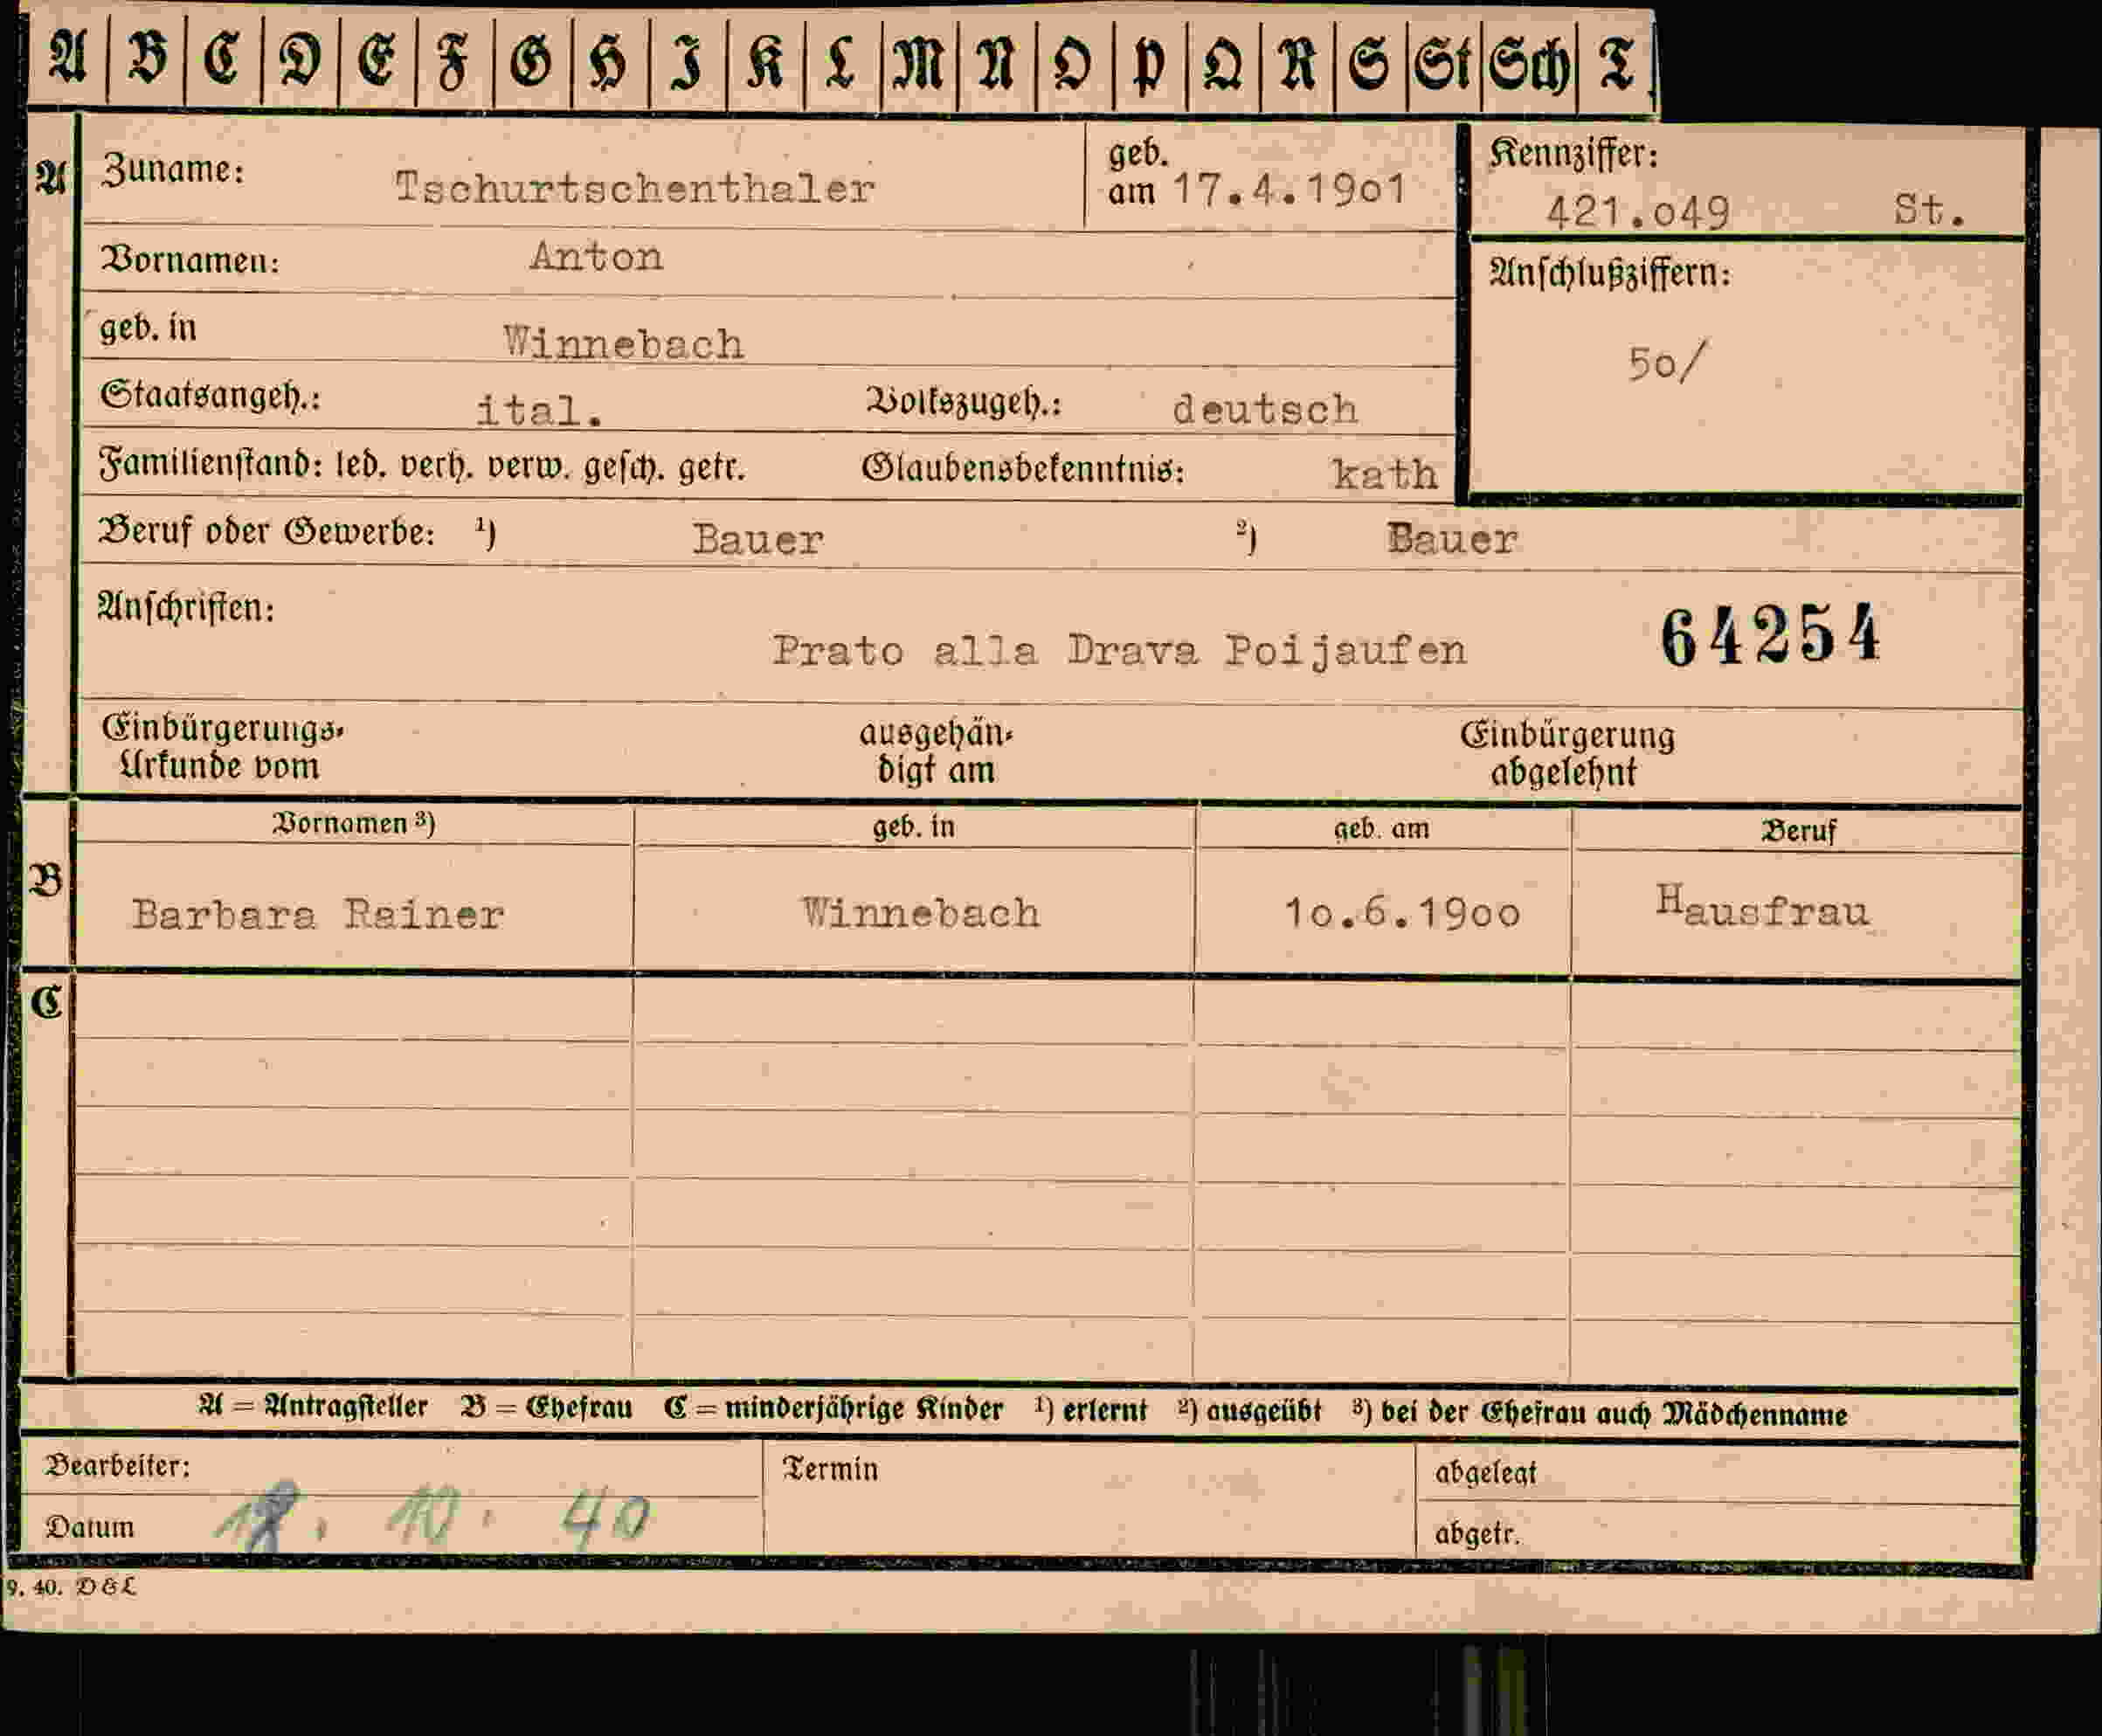 A B C D E F G H I K L M N O P Q R S St Sch T
A Zuname: Tschurtschenthaler geb. am 17.4.1901 Kennziffer: 421.049 St.
Vornamen: Anton Anschlußziffern:
geb. in Winnebach 50/
Staatsangeh.: ital. Volkszugeh.: deutsch
Familienstand: led. verh. verw. gesch. getr. Glaubensbekenntnis: kath
Beruf oder Gewerbe: ¹) Bauer ²) Bauer
Anschriften: Prato alla Drava Poijaufen 64254
Einbürgerungs- ausgehän- Einbürgerung
Urkunde vom digt am abgelehnt
Vornamen ³) geb. in geb. am Beruf
B Barbara Rainer Winnebach 10.6.1900 Hausfrau
C
A = Antragsteller B = Ehefrau C = minderjährige Kinder ¹) erlernt ²) ausgeübt ³) bei der Ehefrau auch Mädchenname
Bearbeiter: Termin abgelegt
Datum 10. 40 abgetr.
9. 40. D&L